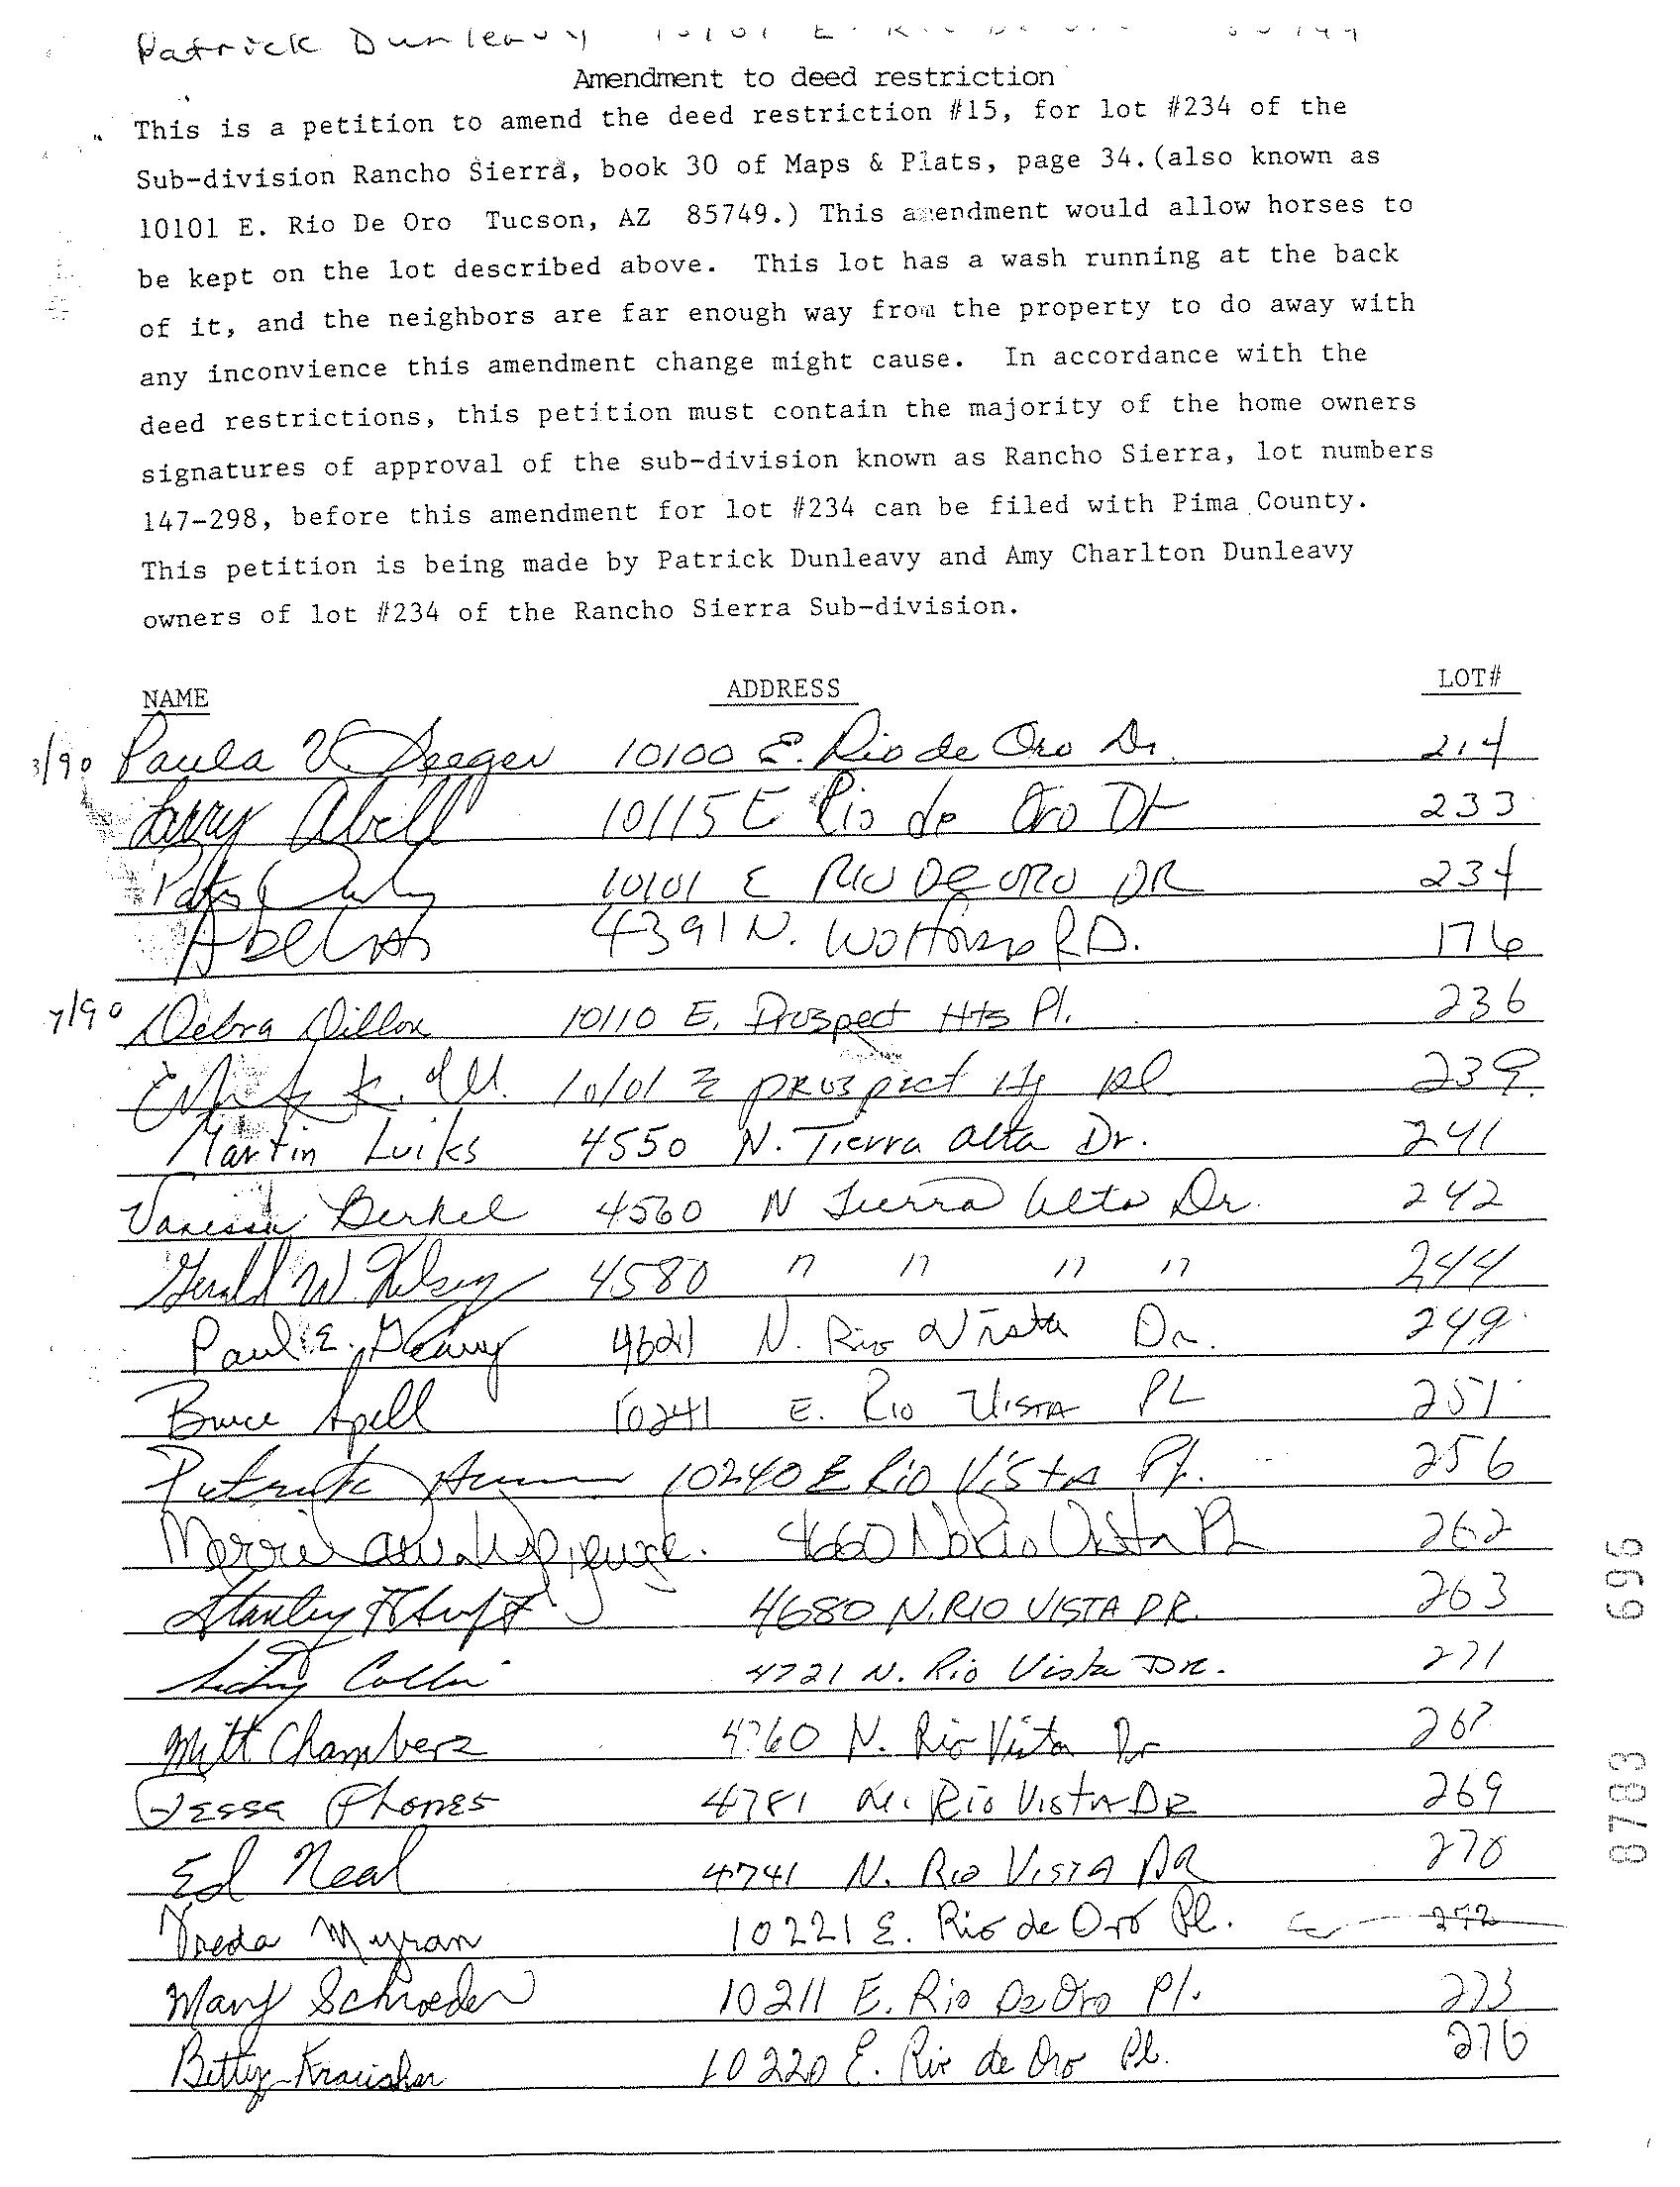 Patrick Dunleavy 10101 E.
Amendment to deed restriction
This is a petition to amend the deed restriction #15, for lot #234 of the
Sub-division Rancho Sierra, book 30 of Maps & Plats, page 34.(also known as
10101 E. Rio De Oro Tucson, AZ 85749.) This amendment would allow horses to
be kept on the lot described above. This lot has a wash running at the back
of it, and the neighbors are far enough way from the property to do away with
any inconvience this amendment change might cause. In accordance with the
deed restrictions, this petition must contain the majority of the home owners
signatures of approval of the sub-division known as Rancho Sierra, lot numbers
147-298, before this amendment for lot #234 can be filed with Pima County.
This petition is being made by Patrick Dunleavy and Amy Charlton Dunleavy
owners of lot #234 of the Rancho Sierra Sub-division.
NAME ADDRESS LOT#
3/90 Paula V. Seeger 10100 E. Rio de Oro Dr. 214
Larry Abell 10115 E Rio de Oro Dr 233
10101 E RIO DE ORO DR 234
4391 N. RD. 176
7/90 Debra Dillon 10110 E. Prospect Hts Pl. 236
K. 10101 E prospect Hg pl 239
Martin Luiks 4550 N. Tierra alta Dr. 241
Vanessa Berkel 4560 N Tierra alta Dr. 242
Gerald W. Kelsey 4580 " " " " 244
Paul E. 4621 N. Rio Vista Dr. 249
Bruce Spell 10241 E. Rio VISTA PL 251
Patrick 10240 E Rio VistA Pl. 256
4660 No Rio Vista Pl 262
Stanley 4680 N. RIO VISTA DR. 263
Collin 4721 N. Rio Vista DR. 271
Milt Chambers 4760 N. Rio Vista Dr 267
Tessa Phones 4781 N. Rio VistA DR 269
Ed Neal 4741 N. Rio VISTA DR 270
Treda Myran 10221 E. Rio de Oro Pl. 272
Mary Schroeder 10211 E. Rio De Oro Pl. 273
Betty 10220 E. Rio de Oro Pl. 276
8783 696